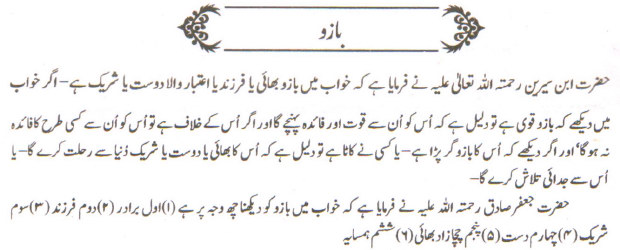 بازو
حضرت ابن سیرین رحمتہ اللہ تعالیٰ علیہ نے فرمایا ہے کہ خواب میں بازو بھائی یا فرزند یا اعتبار والا دوست یا شریک ہے– اگر خواب
میں دیکھے کہ بازو قوی ہے تو دلیل ہے کہ اُس کو اُن سے قوت اور فائدہ پہنچے گا اور اگر اُس کے خلاف ہے تو اُس کو اُن سے کسی طرح کا فائدہ
نہ ہو گا‘ اور اگر دیکھے کہ اُس کا بازو گر پڑا ہے– یا کسی نے کاٹا ہے تو دلیل ہے کہ اُس کا بھائی یا دوست یا شریک دُنیا سے رحلت کرے گا– یا
اُس سے جدائی تلاش کرے گا–
حضرت جعفر صادق رحمتہ اللہ علیہ نے فرمایا ہے کہ خواب میں بازو کو دیکھنا چھ وجہ پر ہے (۱) اول برادر (۲) دوم فرزند (۳) سوم
شریک (۴) چہارم دست (۵) پنجم چچازاد بھائی (۶) ششم ہمسایہ